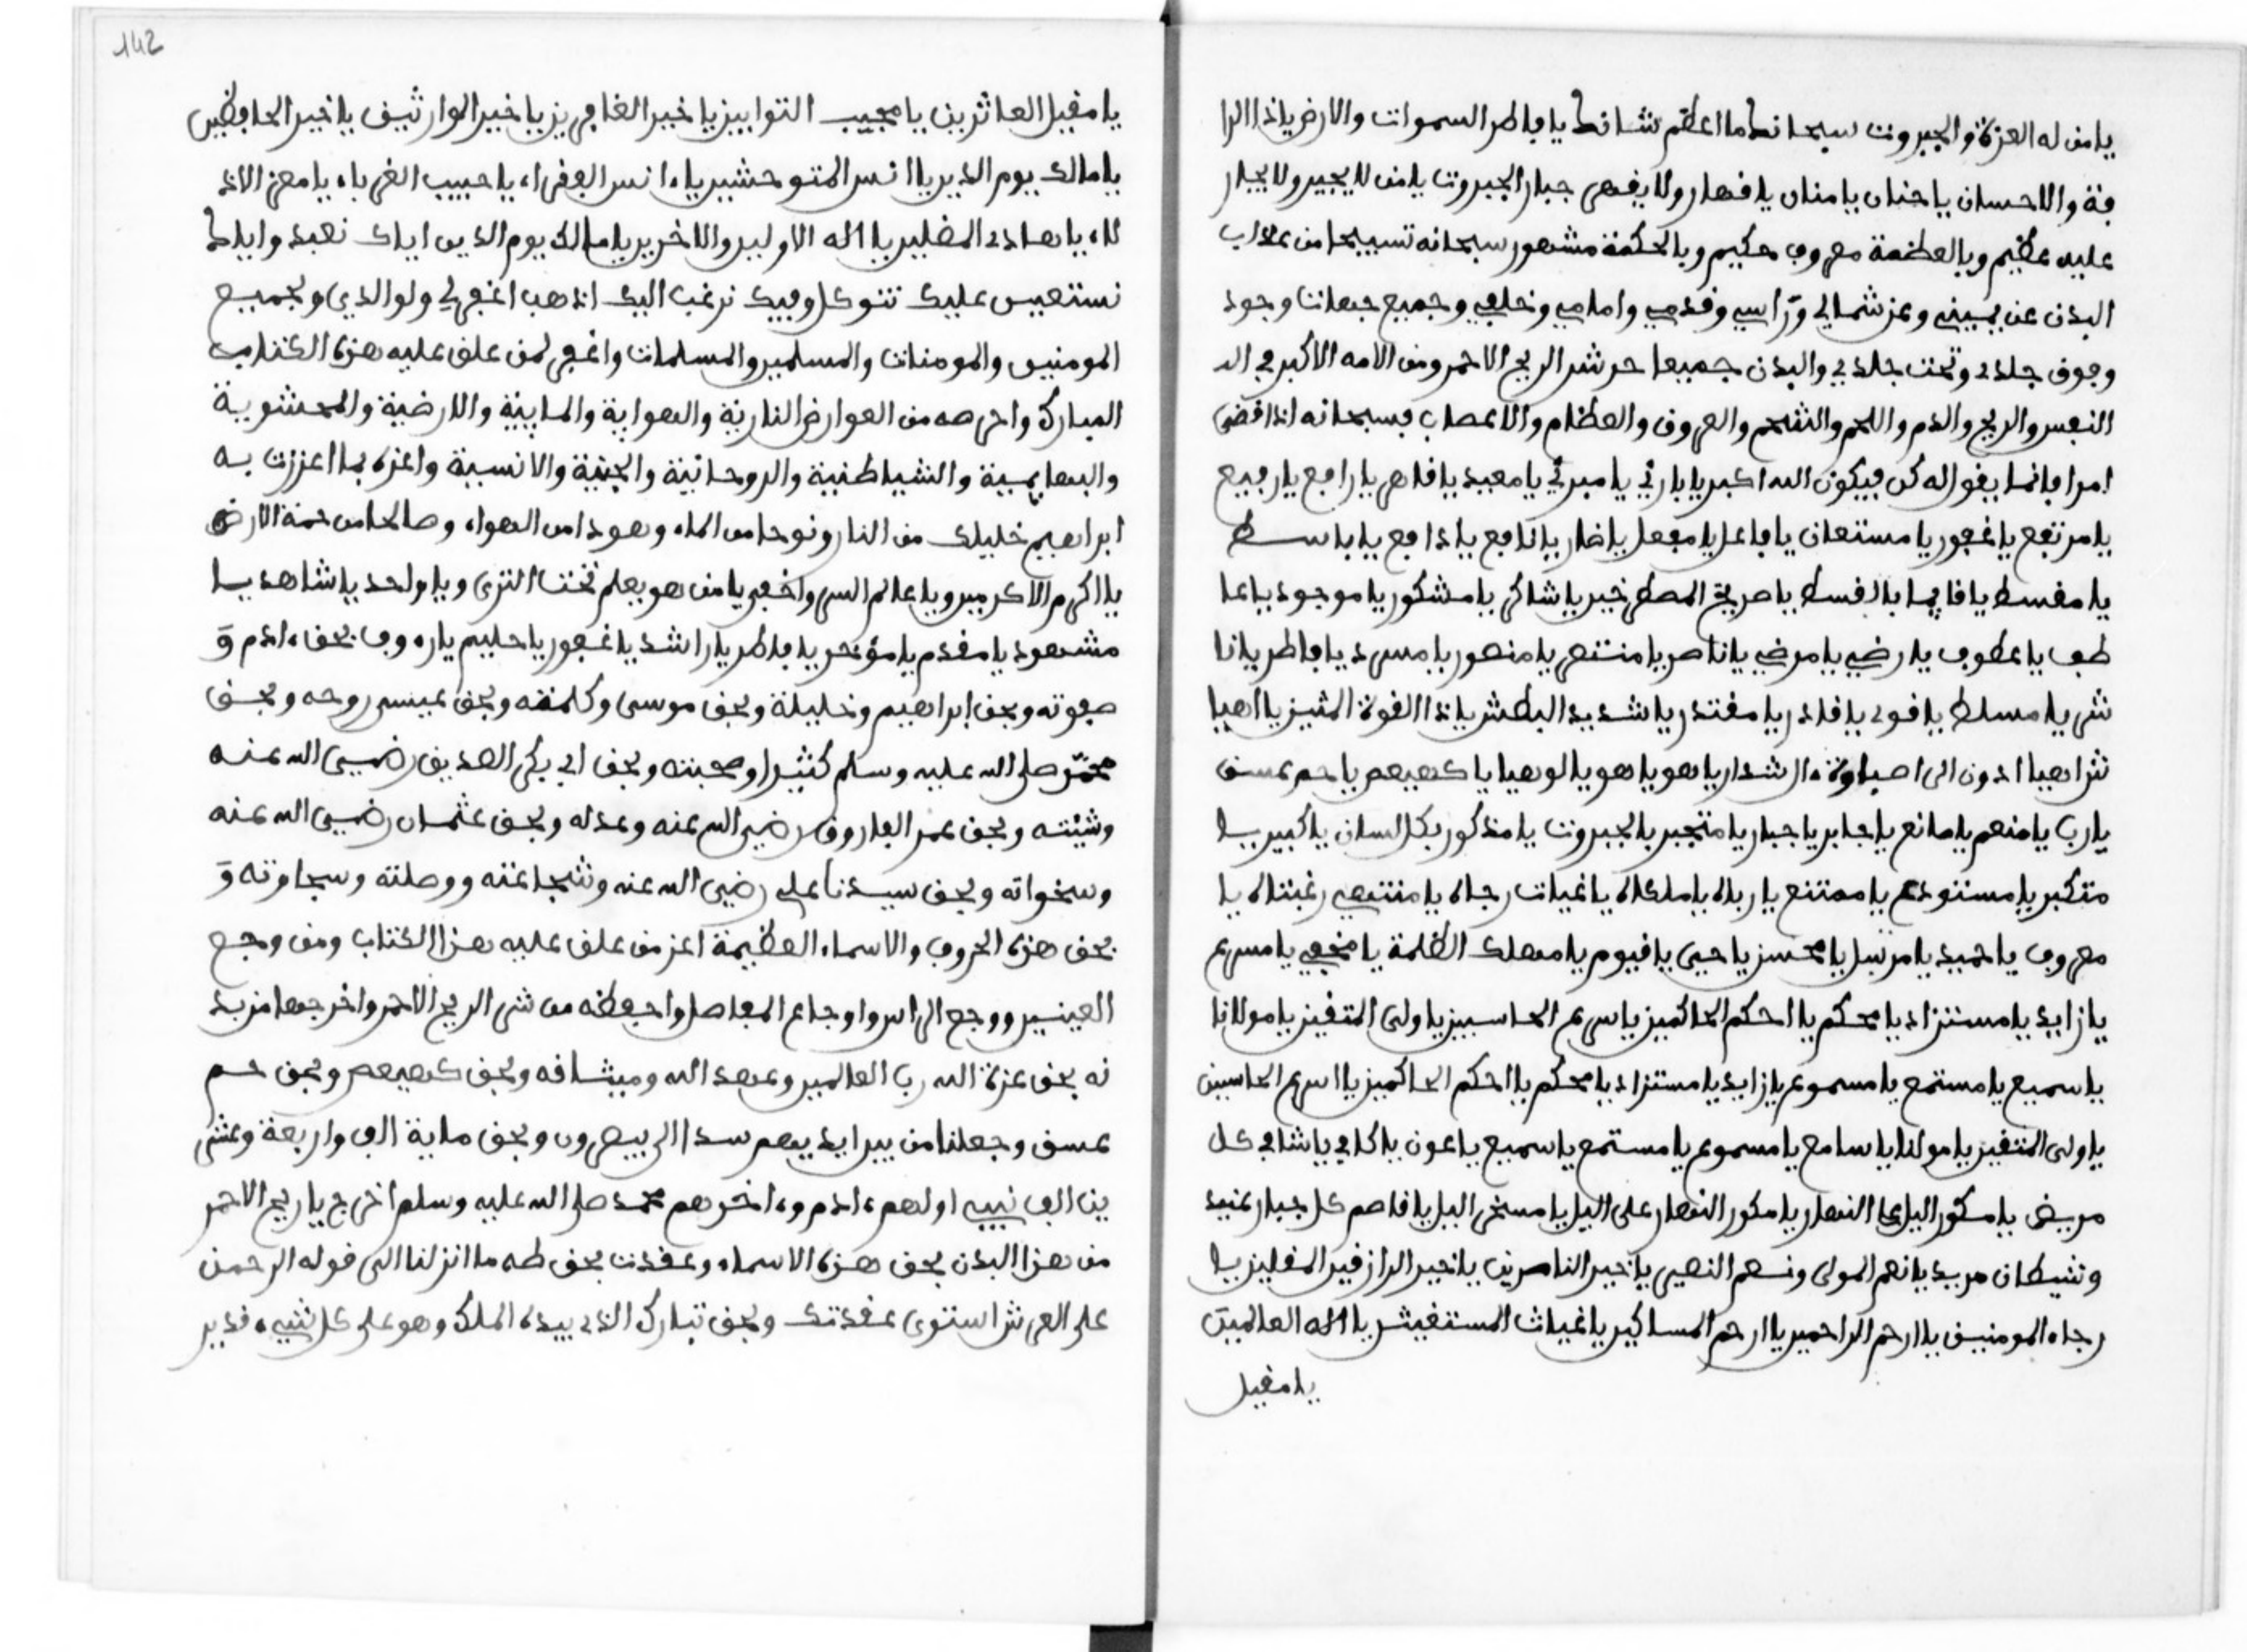 يا من له العزة والجبروت سبحانك ما اعظم شانك يا فاطر السموات والارض يا ذا الرا
فة والاحسان يا حنان يا منان يا قهار ولا يقهر جبار الجبروت يا من لا يجير ولا يجار
عليه عظيم وبالعظمة معروف حكيم وبالحكمة مشهور سبحانه تسبيحا من عذاب
البدن عن يميني وعن شمالي وراسي وقدمي وامامي وخلفي وجميع جهاتنا وجود
وجوف جلدي وتحت جلدي والبدن جميعا من شر الريح الاحمر ومن الامه الاكبر في الد
النفس والريح والدم واللحم والشحم والعروق والعظام والاعصاب فسبحانه اذا قضى
امرا فانما يقول له كن فيكون الله اكبر يا بارئ يا مبرئ يا معيد يا قاهر يا رافع يا رفيع
يا مرتفع يا غفور يا مستعان يا فاعل يا مفعل يا ضار يا نافع يا دافع يا باسط
يا مقسط يا قايما بالقسط يا صريخ المصطرخين يا شاكر يا مشكور يا موجود يا عا
طف يا عطوف يا رضي يا مرضي يا ناصر يا منتصر يا منصور يا مسرد يا فاطر يا نا
شر يا مسلط يا قوي يا قادر يا مقتدر يا شديد البطش يا ذا القوة المتين يا اهيا
شراهيا ادوناي اصباوة ءال شداي يا هو يا هو يا لوهيا يا كهيعص يا حم عسق
يا رب يا منعم يا مانع يا جابر يا جبار يا متجبر بالجبروت يا مذكور بكل لسان يا كبير يا
متكبر يا مستودع يا ممتنع يا رباه يا ملكاه يا غياث رجاه يا منتهى رغبتاه يا
معروف يا حميد يا مرتبل يا محسن يا حيى يا قيوم يا مهلك الظلمة يا مخفي يا مسرع
يا زايد يا مستزاد يا محكم يا احكم الحاكمين يا سريع الحاسبين يا ولي المتقين يا مولانا
يا سميع يا مستمع يا مسموع يا زايد يا مستزاد يا محكم يا احكم الحاكمين يا اسرع الحاسبين
يا ولي المتقين يا مولنا يا سامع يا مسموع يا مستمع يا سميع يا عون يا كافي يا شافي كل
مريض يا مكور اليل على النهار يا مكور النهار على اليل يا مسخر اليل يا قاصم كل جبار عنيد
وشيطان مريد يا نعم المولى ونعم النصير يا خير الناصرين يا خير الرازقين المقلين يا
رجاء المومنين يا ارحم الراحمين يا ارحم المساكين يا غياث المستغيثين يا اله العالمين
يا مقيل
142
يا مقيل العاثرين يا مجيب التوابين يا خير الغافرين يا خير الوارثين يا خير الحافظين
يا مالك يوم الدين يا انس المتوحشين يا ءانس الفقراء يا حبيب الغرباء يا معز الاذ
لاء يا هادي المضلين يا اله الاولين والاخرين يا مالك يوم الدين اياك نعبد واياك
نستعين عليك نتوكل وفيك نرغب اليك اذهب اغفر لي ولوالدي ولجميع
المومنين والمومنات والمسلمين والمسلمات واغفر لمن علق عليه هذه الكتاب
المبارك واحرصه من العوارض النارية والهوابية والمايية والارضية والمحشوية
والبهايمية والشياطنية والروحانية والجنية والانسية واعزه بما اعززت به
ابراهيم خليلك من النار ونوحا من الماء وهودا من الهواء وصالحا من حمة الارض
يا اكرم الاكرمين ويا عالم السر واخفى يا من هو يعلم تحت الثرى ويا واحد يا شاهد يا
مشهود يا مقدم يا مؤخر يا فاطر يا راشد يا غفور يا حليم يا رءوف بحق ءادم و
صفوته وبحق ابراهيم وخليلة وبحق موسى وكلمته وبحق عيسى روحه وبحق
محمد صلى الله عليه وسلم كثيرا ومحبته وبحق ابي بكر الصديق رضي الله عنه
وشيته وبحق عمر الفاروق رضي الله عنه وعدله وبحق عثمان رضي الله عنه
وسخواته وبحق سيدنا علي رضي الله عنه وشجاعته ووصلته وسجاوته و
بحق هذه الحروف والاسماء العظيمة اعز من علق عليه هذا الكتاب ومن وجع
العينين ووجع الراس واوجاع المفاصل واحفظه من شر الريح الاحمر واخرجها من بد
نه بحق عزة الله رب العالمين وعهد الله وميثاقه وبحق كهيعص وبحق حم
عسق وجعلنا من بين ايديهم سدا الى يبصرون وبحق ماية الف واربعة وعشر
ين الف نبيي اولهم ءادم وءاخرهم محمد صلى الله عليه وسلم اخرج يا ريح الاحمر
من هذا البدن بحق هذه الاسماء وعقدت بحق طه ما انزلنا الى قوله الرحمن
على العرش استوى عقدتك وبحق تبارك الذي بيده الملك وهو على كل شيء قدير